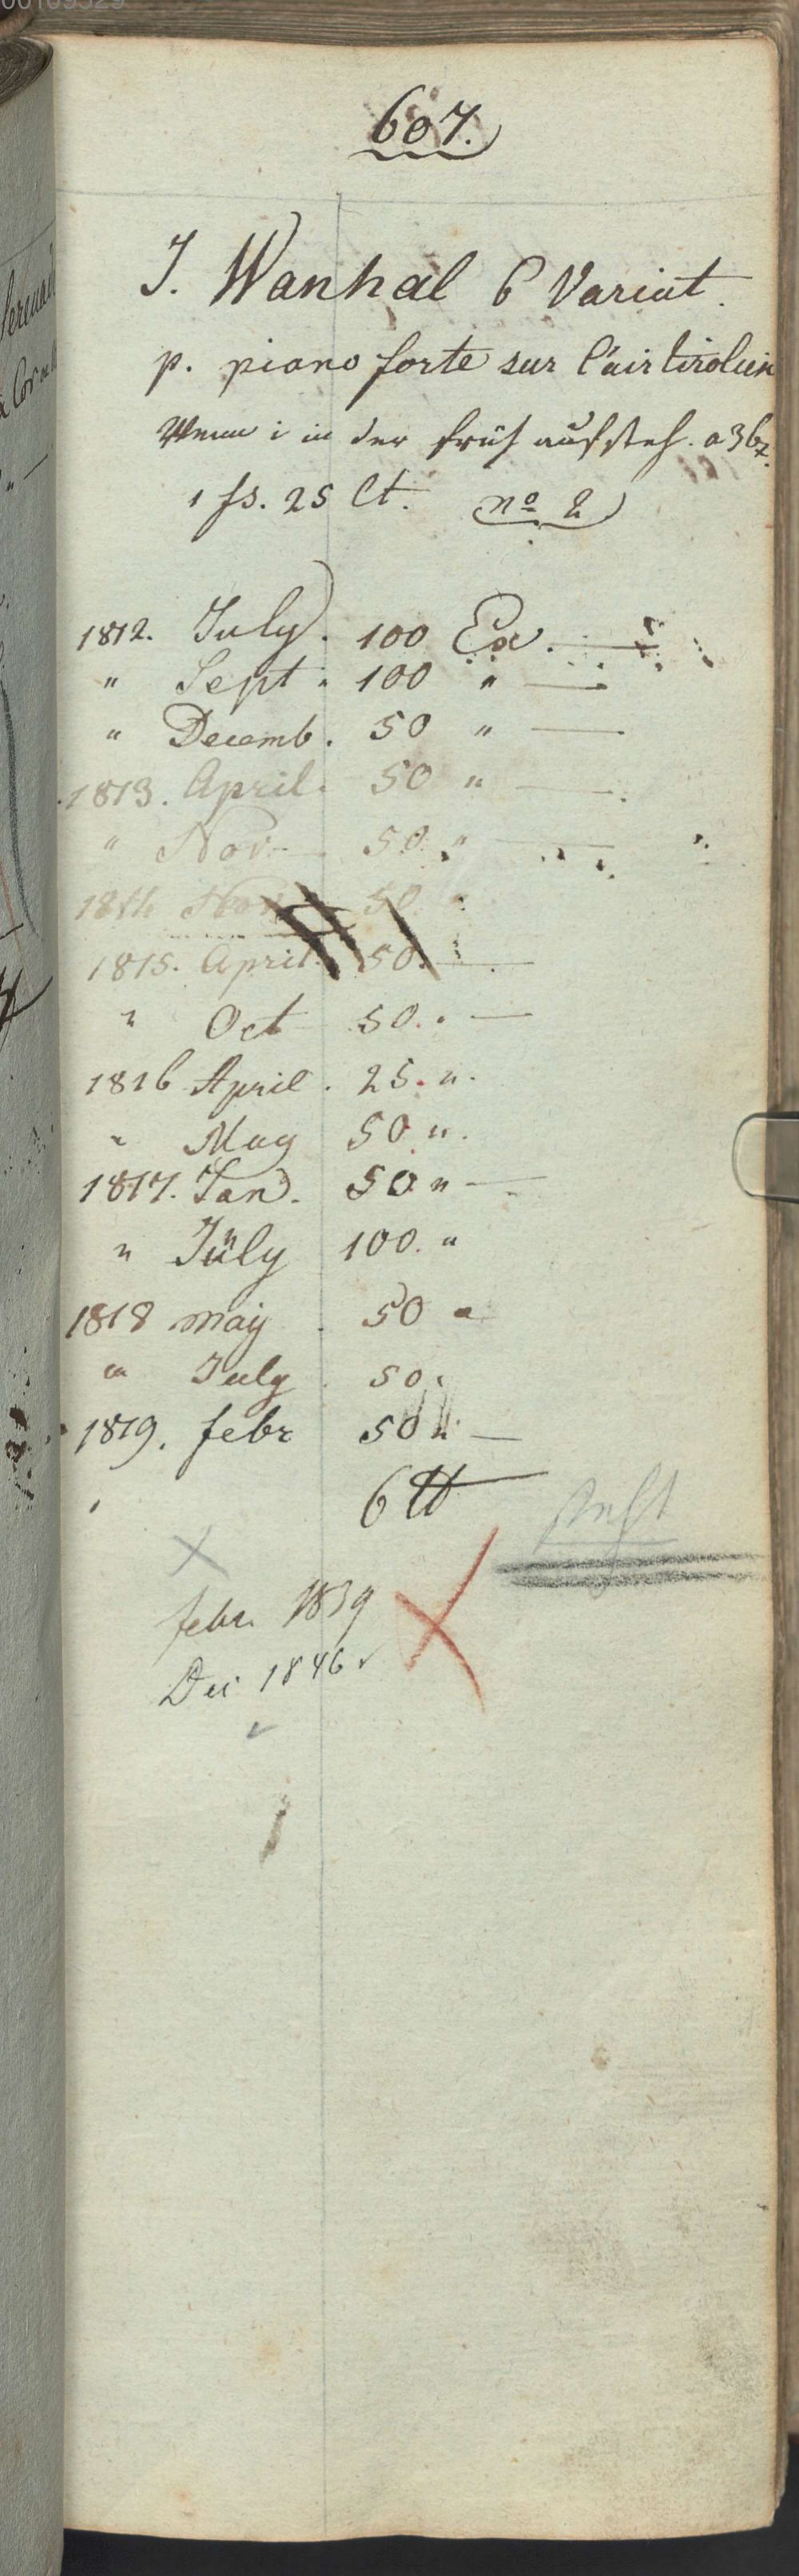 00109529
607.
J. Wanhal 6 Variat.
p. piano forte sur l'air tirolien
Wenn i in der früh aufsteh. a 36 x.
1 fs. 25 Ct. no 2
1812. July. 100 Ex. —
" Sept. 100 " —
" Decemb. 50 " —
1813. April. 50 " —
" Nov. 50 " —
1814 Nov 50 "
1815. April. 50. —
" Oct 50. " —
1816 April. 25. ".
" May 50 ".
1817. Jan. 50 " —
" July 100. "
1818 maÿ 50 "
" July 50.
1819. febr 50 " —
6 tt
febr. 1839
Dec 1846